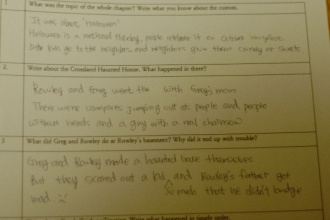 1. What was the topic of the whole chapter? Write what you know about the custom.
It was about 'Halloween'
Halloween is a national thing, people celebrate it on
kids go to the neighbors, and neighbors give them candy or sweets
2. Write about the Crossland Haunted House. What happened in there?
Rowley and Greg went the with Greg's mom.
There were vampires jumping out at people and people
without heads and a guy with a real chainsaw
3 What did Greg and Rowley do at Rowley's basement? Why did it end up with trouble?
Greg and Rowley made a haunted house themselves
But they scared out a kid, and Rowley's father got
mad so much that he didn't budge